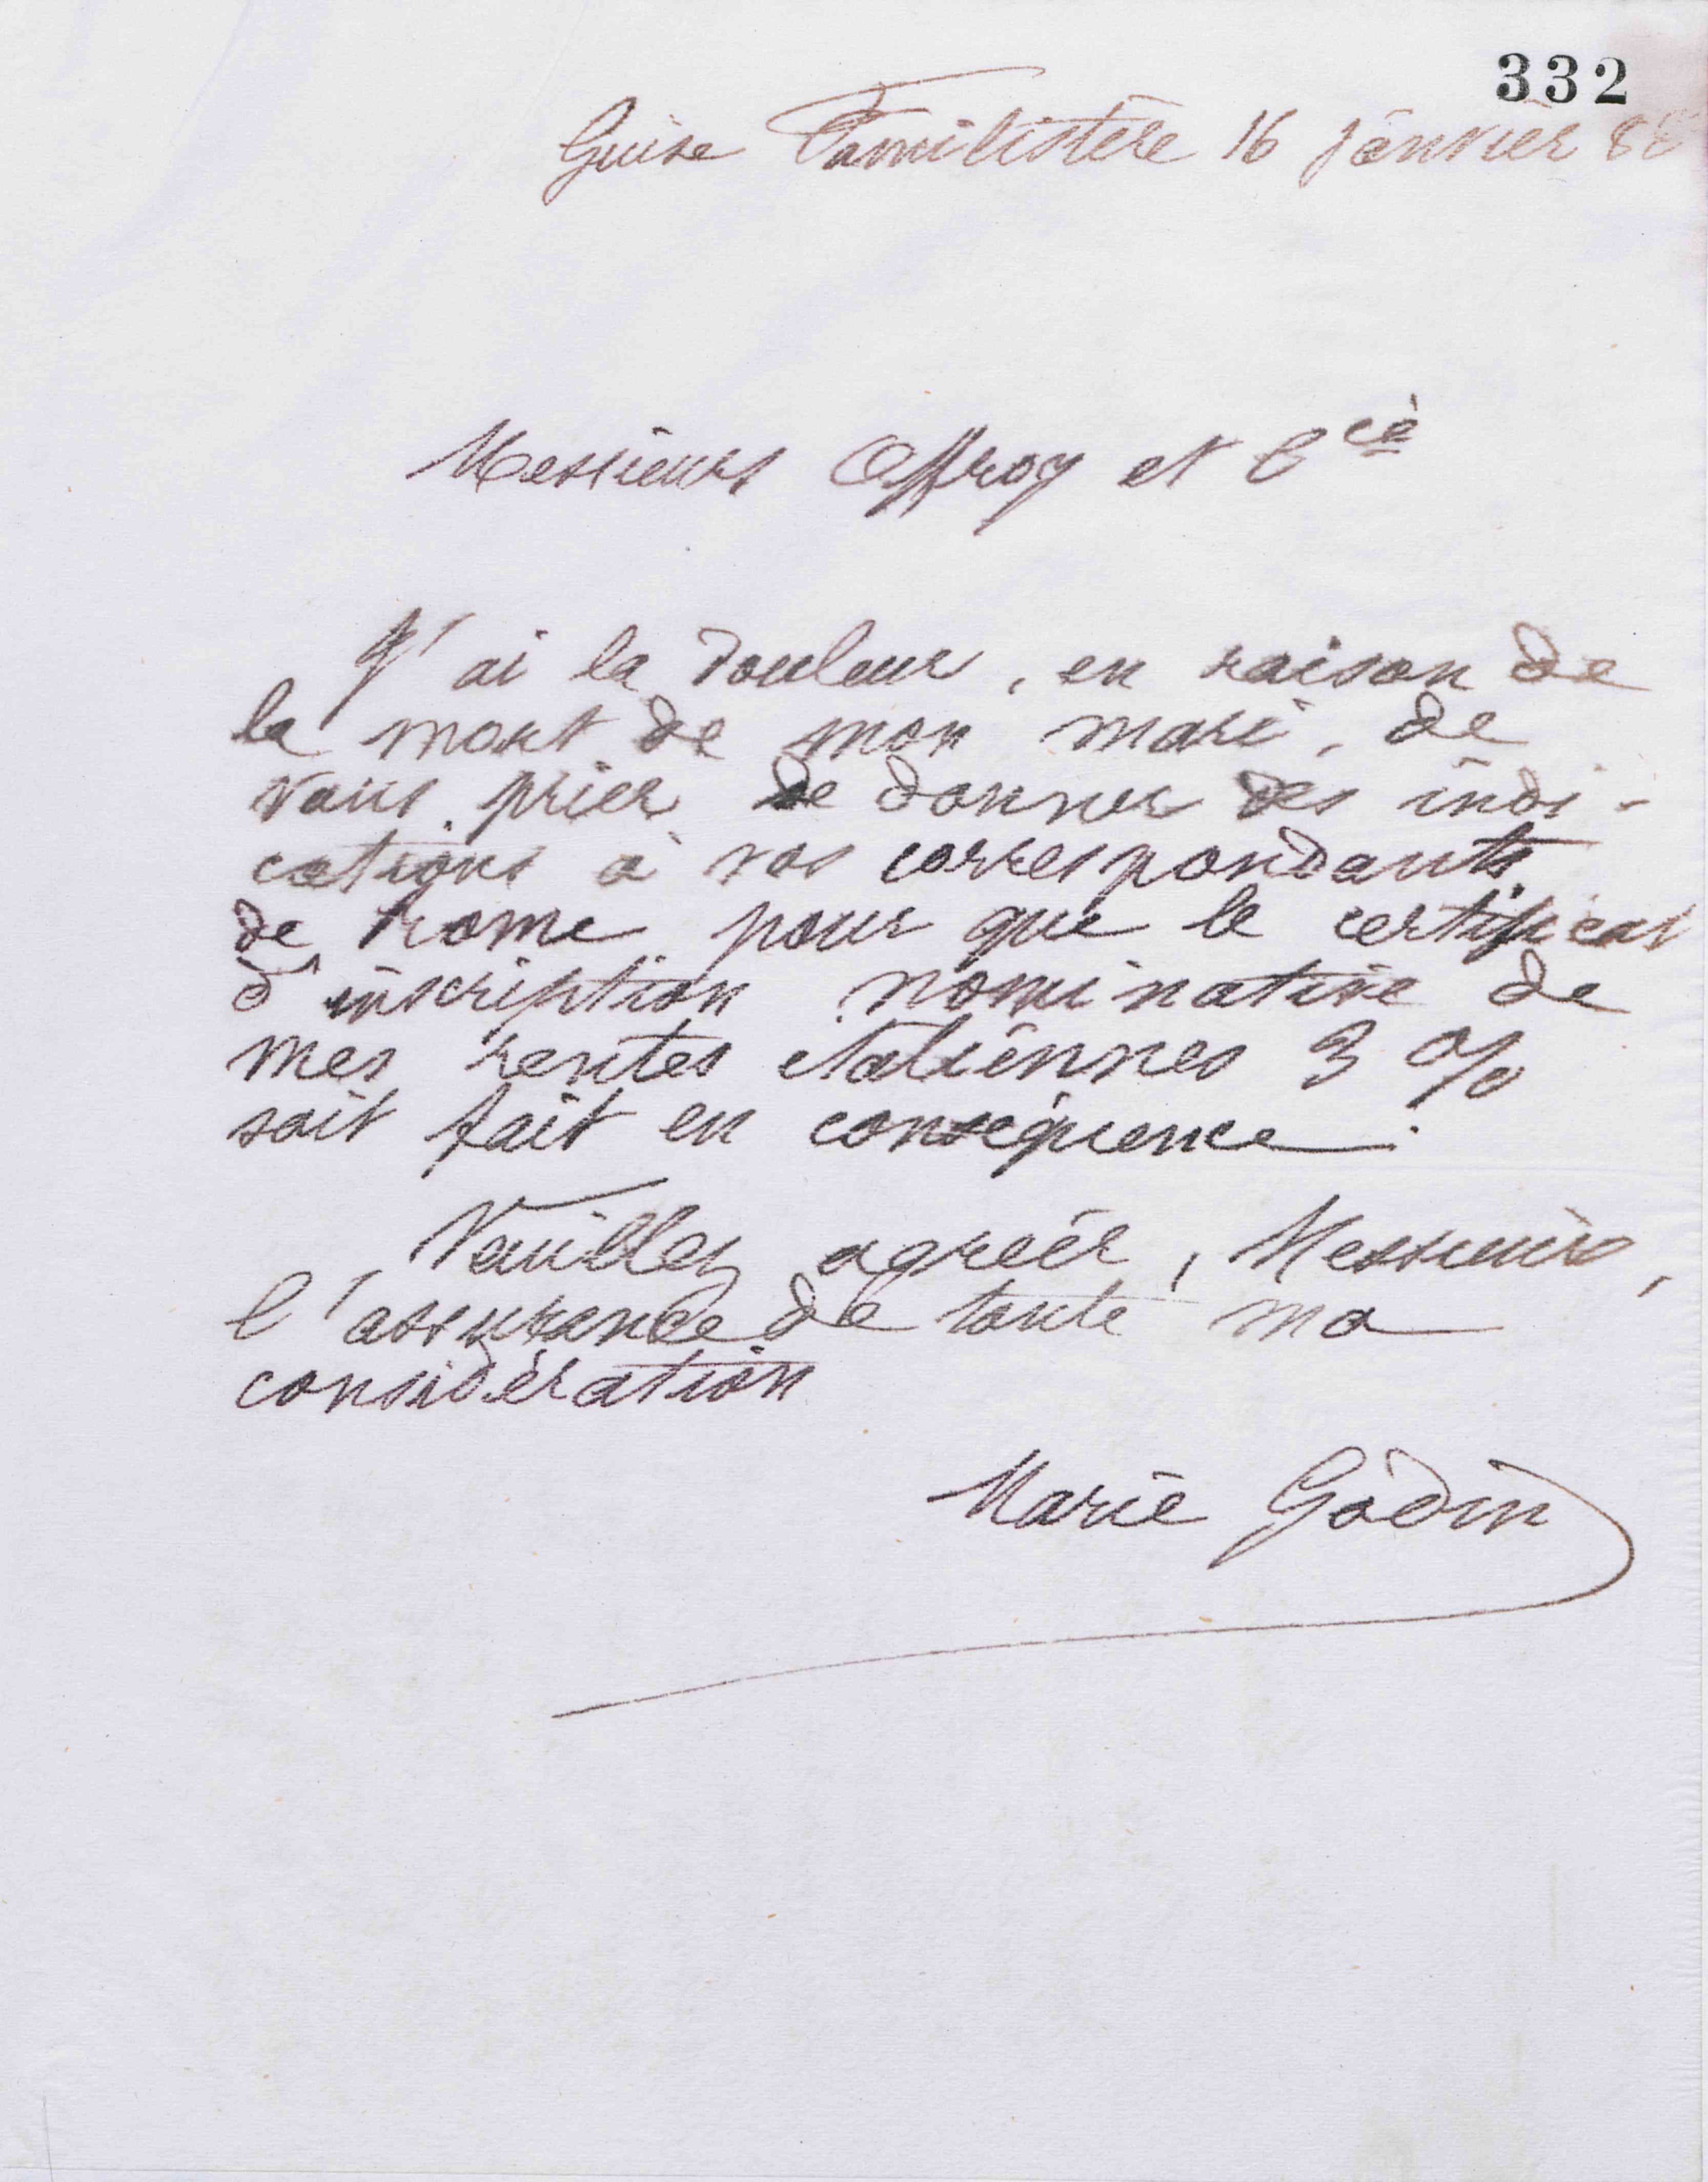 332
Guise Familistère 16 janvier 88
Messieurs Offroy et Cie
J'ai la douleur, en raison de
la mort de mon mari, de
vous prier de donner des indi-
cations à vos correspondants
de Rome pour que le certificat
d'inscription nominative de
mes rentes italiennes 3 %
soit fait en conséquence.
Veuillez agréer, Messieurs,
l'assurance de toute ma
considération
Marie Godin